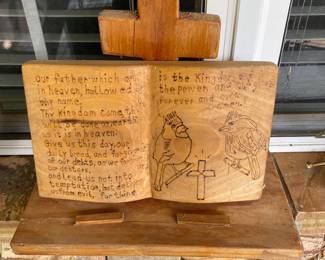 Our father which art
in heaven, hallowed
be thy name.
Thy Kingdom come thy
will be done on earth
as it is in heaven.
Give us this day, our
daily bread, and forgive
us of our debts, as we forgive
our debtors.
and lead us not into
temptation, but deliver
us from evil, for thine
is the Kingdom
the power and
forever and